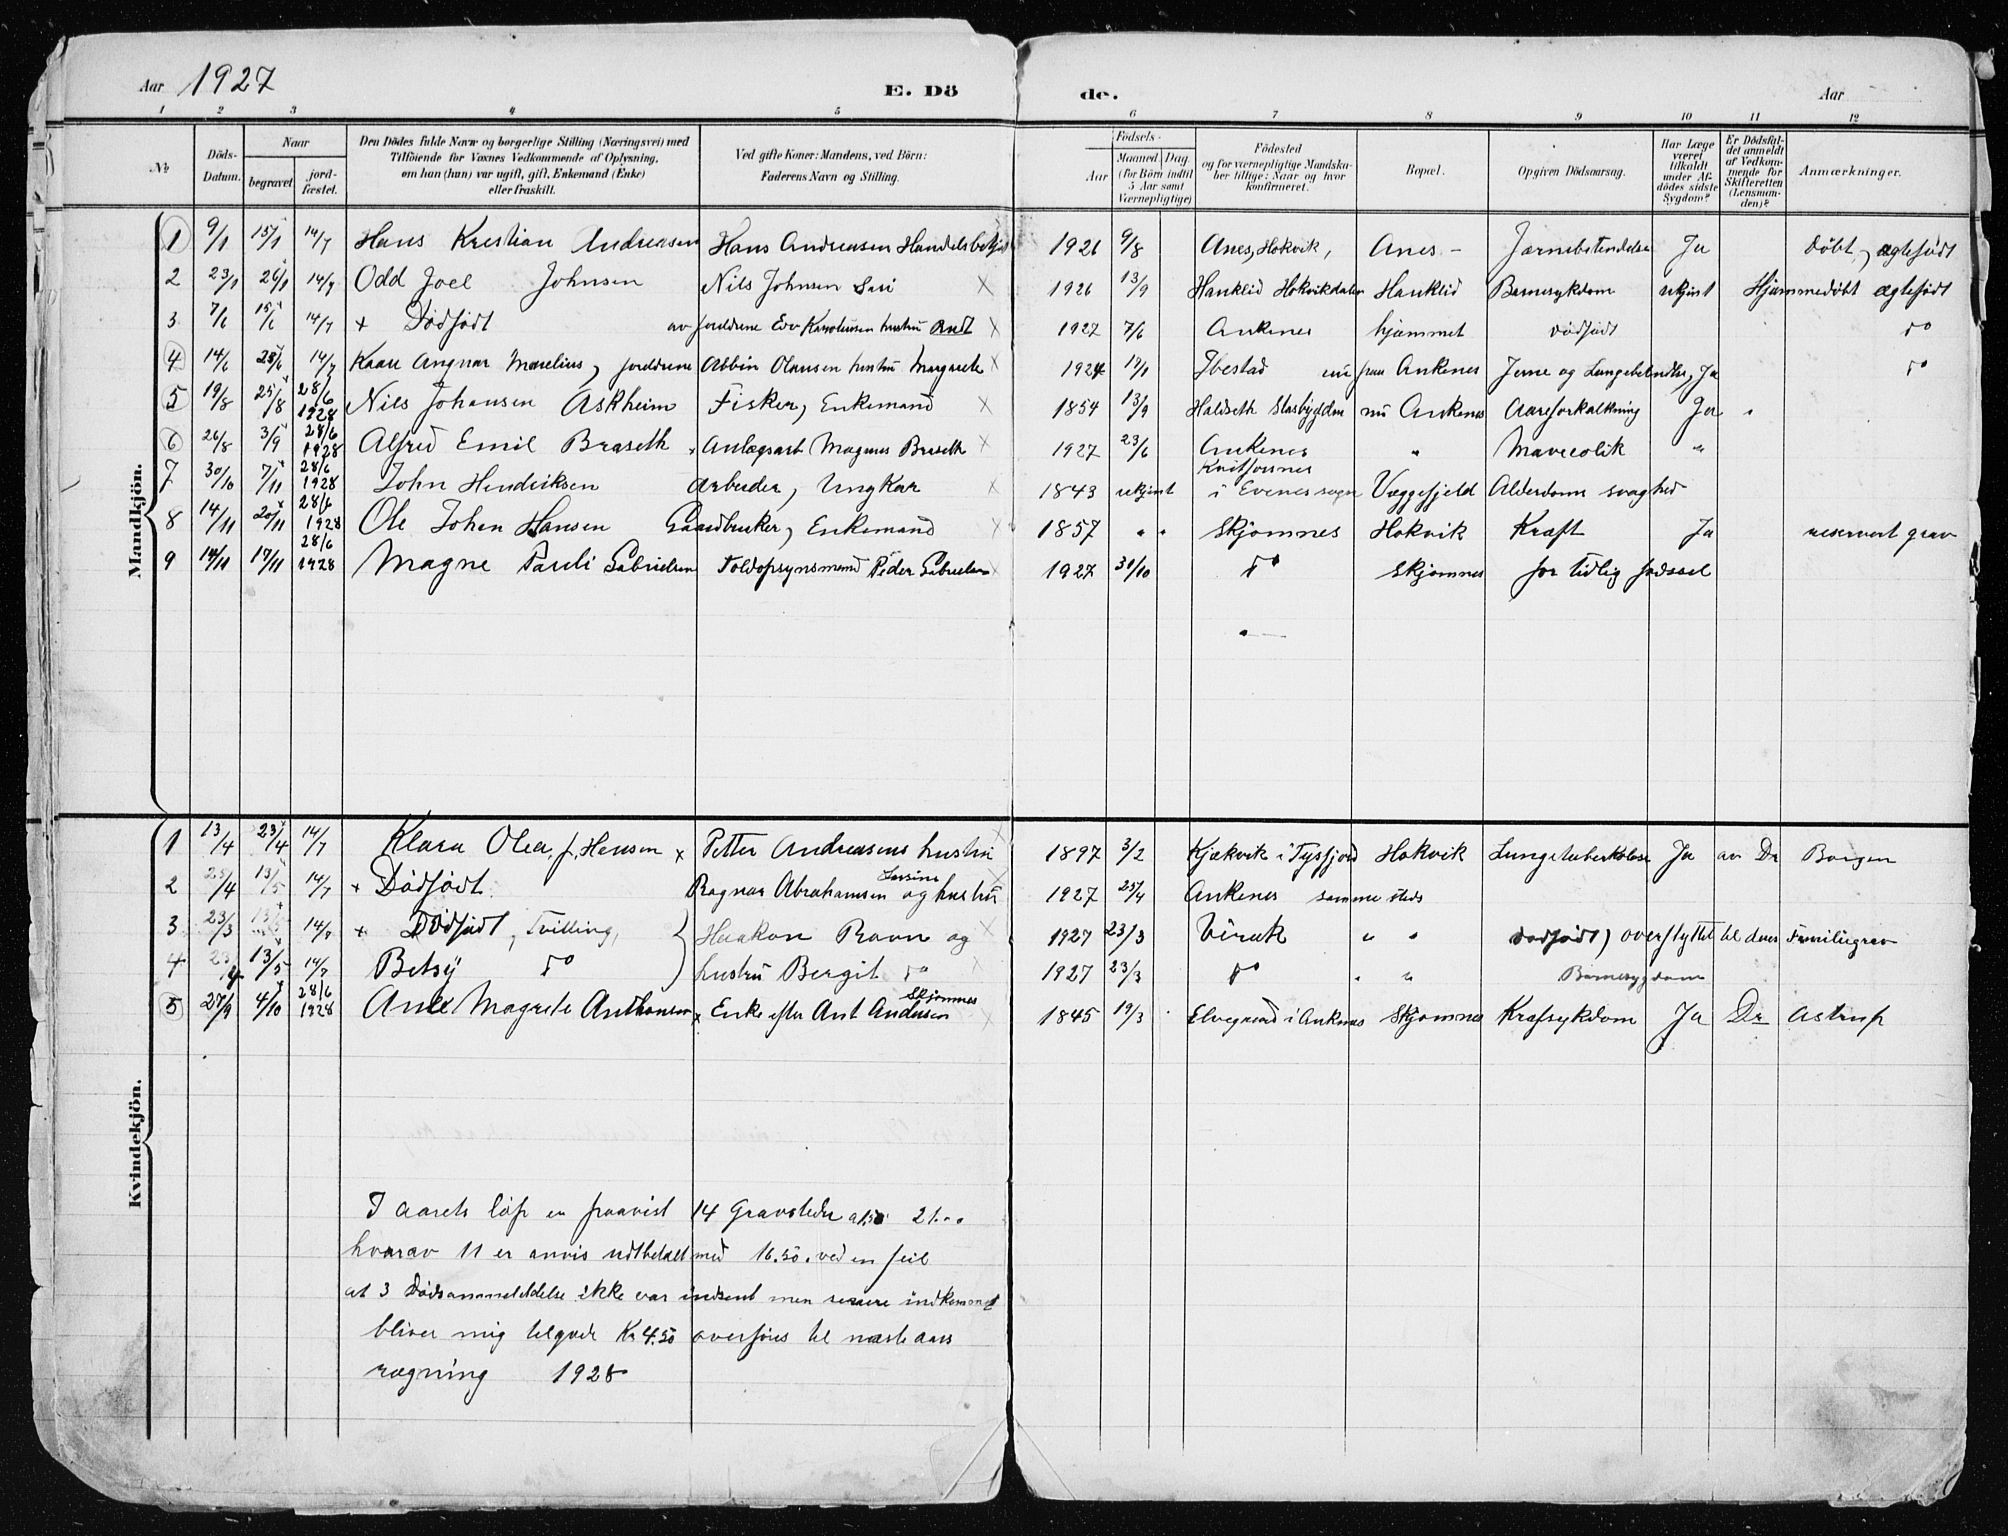 Aar 1927 E. Dö de. Aar
1 2 3 4 5 6 7 8 9 10 11 12
No Döds-Datum. Naar begravet jordfæstet. Den Dödes fulde Navn og borgerlige Stilling (Næringsvei) med Tilföiende for Voxnes Vedkommende af Oplysning, om han (hun) var ugift, gift, Enkemand (Enke) eller fraskilt. Ved gifte Koner: Mandens, ved Börn: Faderens Navn og Stilling. Födsels- Aar Maaned Dag. (for Börn indtil 5 Aar samt Værnepligtige) Födested og for værnepligtige Mandskaber tillige: Naar og hvor konfirmeret. Bopæl. Opgiven Dödsaarsag. Har Læge været tilkaldt under Afdödes sidste Sygdom? Er Dödsfaldet anmeldt af Vedkommende for Skifteretten (Lensmanden)? Anmærkninger.
Mandkjön.
1 9/1 15/1 14/7 Hans Krestian Andreasen Hans Andreasen Handelsbetjent 1926 9/8 Anes, Hokvik, Anes - Jærnebetendelse Ja Döbt, ægtefödt
2 23/1 26/1 14/7 Odd Joel Johnsen Nils Johnsen × 1926 13/9 Hanklid Hokvikdalen Hanklid Barnesykdom ukjent Hjemmedöbt ægtefödt
3 7/6 15/6 14/7 + Dödfödt av foreldrene Edv Karolinsen hustru × 1927 7/6 Ankenes hjæmmet dödfödt do
4 14/6 28/6 14/7 Kaare Angnar Marelius, foreldrene Albbin Olausen hustru Margrete × 1924 19/1 Ibestad nu paa Ankenes Jerne og Lungebetendelse, Ja do
5 19/8 25/8 28/6 1928 Nils Johansen Askheim Fisker, Enkemand × 1854 13/9 Haldseth nu Ankenes Aareforkalkning Ja "
6 26/8 3/9 28/6 1928 Alfred Emil Braseth Anlægsarb Magnus Braseth × 1927 23/6 Ankenes " Mavecolik "
7 30/10 7/11 28/6 1928 John Hendriksen Arbeider, Ungkar × 1843 ukjent Kvitfornes i Evenes sogn Væggefjeld Alderdoms svaghed
8 14/11 20/11 28/6 1928 Ole Johan Hansen Gaardbruker, Enkemand × 1857 " " Skjomnes Hokvik Kræft Ja reservert grav
9 14/11 17/11 28/6 1928 Magne Pauli Gabrielsen Toldopsynsmand Peder Gabrielsen 1927 31/10 do Skjomnes for tidlig födssel
Kvindekjön.
1 13/4 23/4 14/7 Klara Olea, f. Hansen × Petter Andreasens hustru 1897 3/2 Kjækvik i Tysfjord Hokvik Lungetuberkolose Ja av Dr Borgen
2 25/4 13/5 14/7 + Dödfödt. Ragnar Abrahamsen og hustru 1927 25/4 Ankenes samme steds
3 23/3 13/5 14/7 + Dödfödt, Tvilling, Haakon Ravn og 1927 23/3 Virak " " dödfödt, overflyttet til deres Familiegrav
4 13/5 14/7 Betsy do hustru Bergit do 1927 23/3 do " " Barnesygdom
5 27/9 4/10 28/6 1928 Ane Magrete Anthonsen × Enke efter Ant Andersen Skjomnes 1845 19/3 Elvegaard i Ankenes Skjomnes Kræfsykdom Ja Dr Astrup
I aarets löp er paavist 14 Gravsteder a 1.50 21.00
hvorav 11 er anvis udtbetalt med 16.50. ved en feil
at 3 Dödsanmeldelse ikke var indsent men senere indkommet
bliver mig tilgode Kr 4.50 overföres til næste aars
rægning 1928